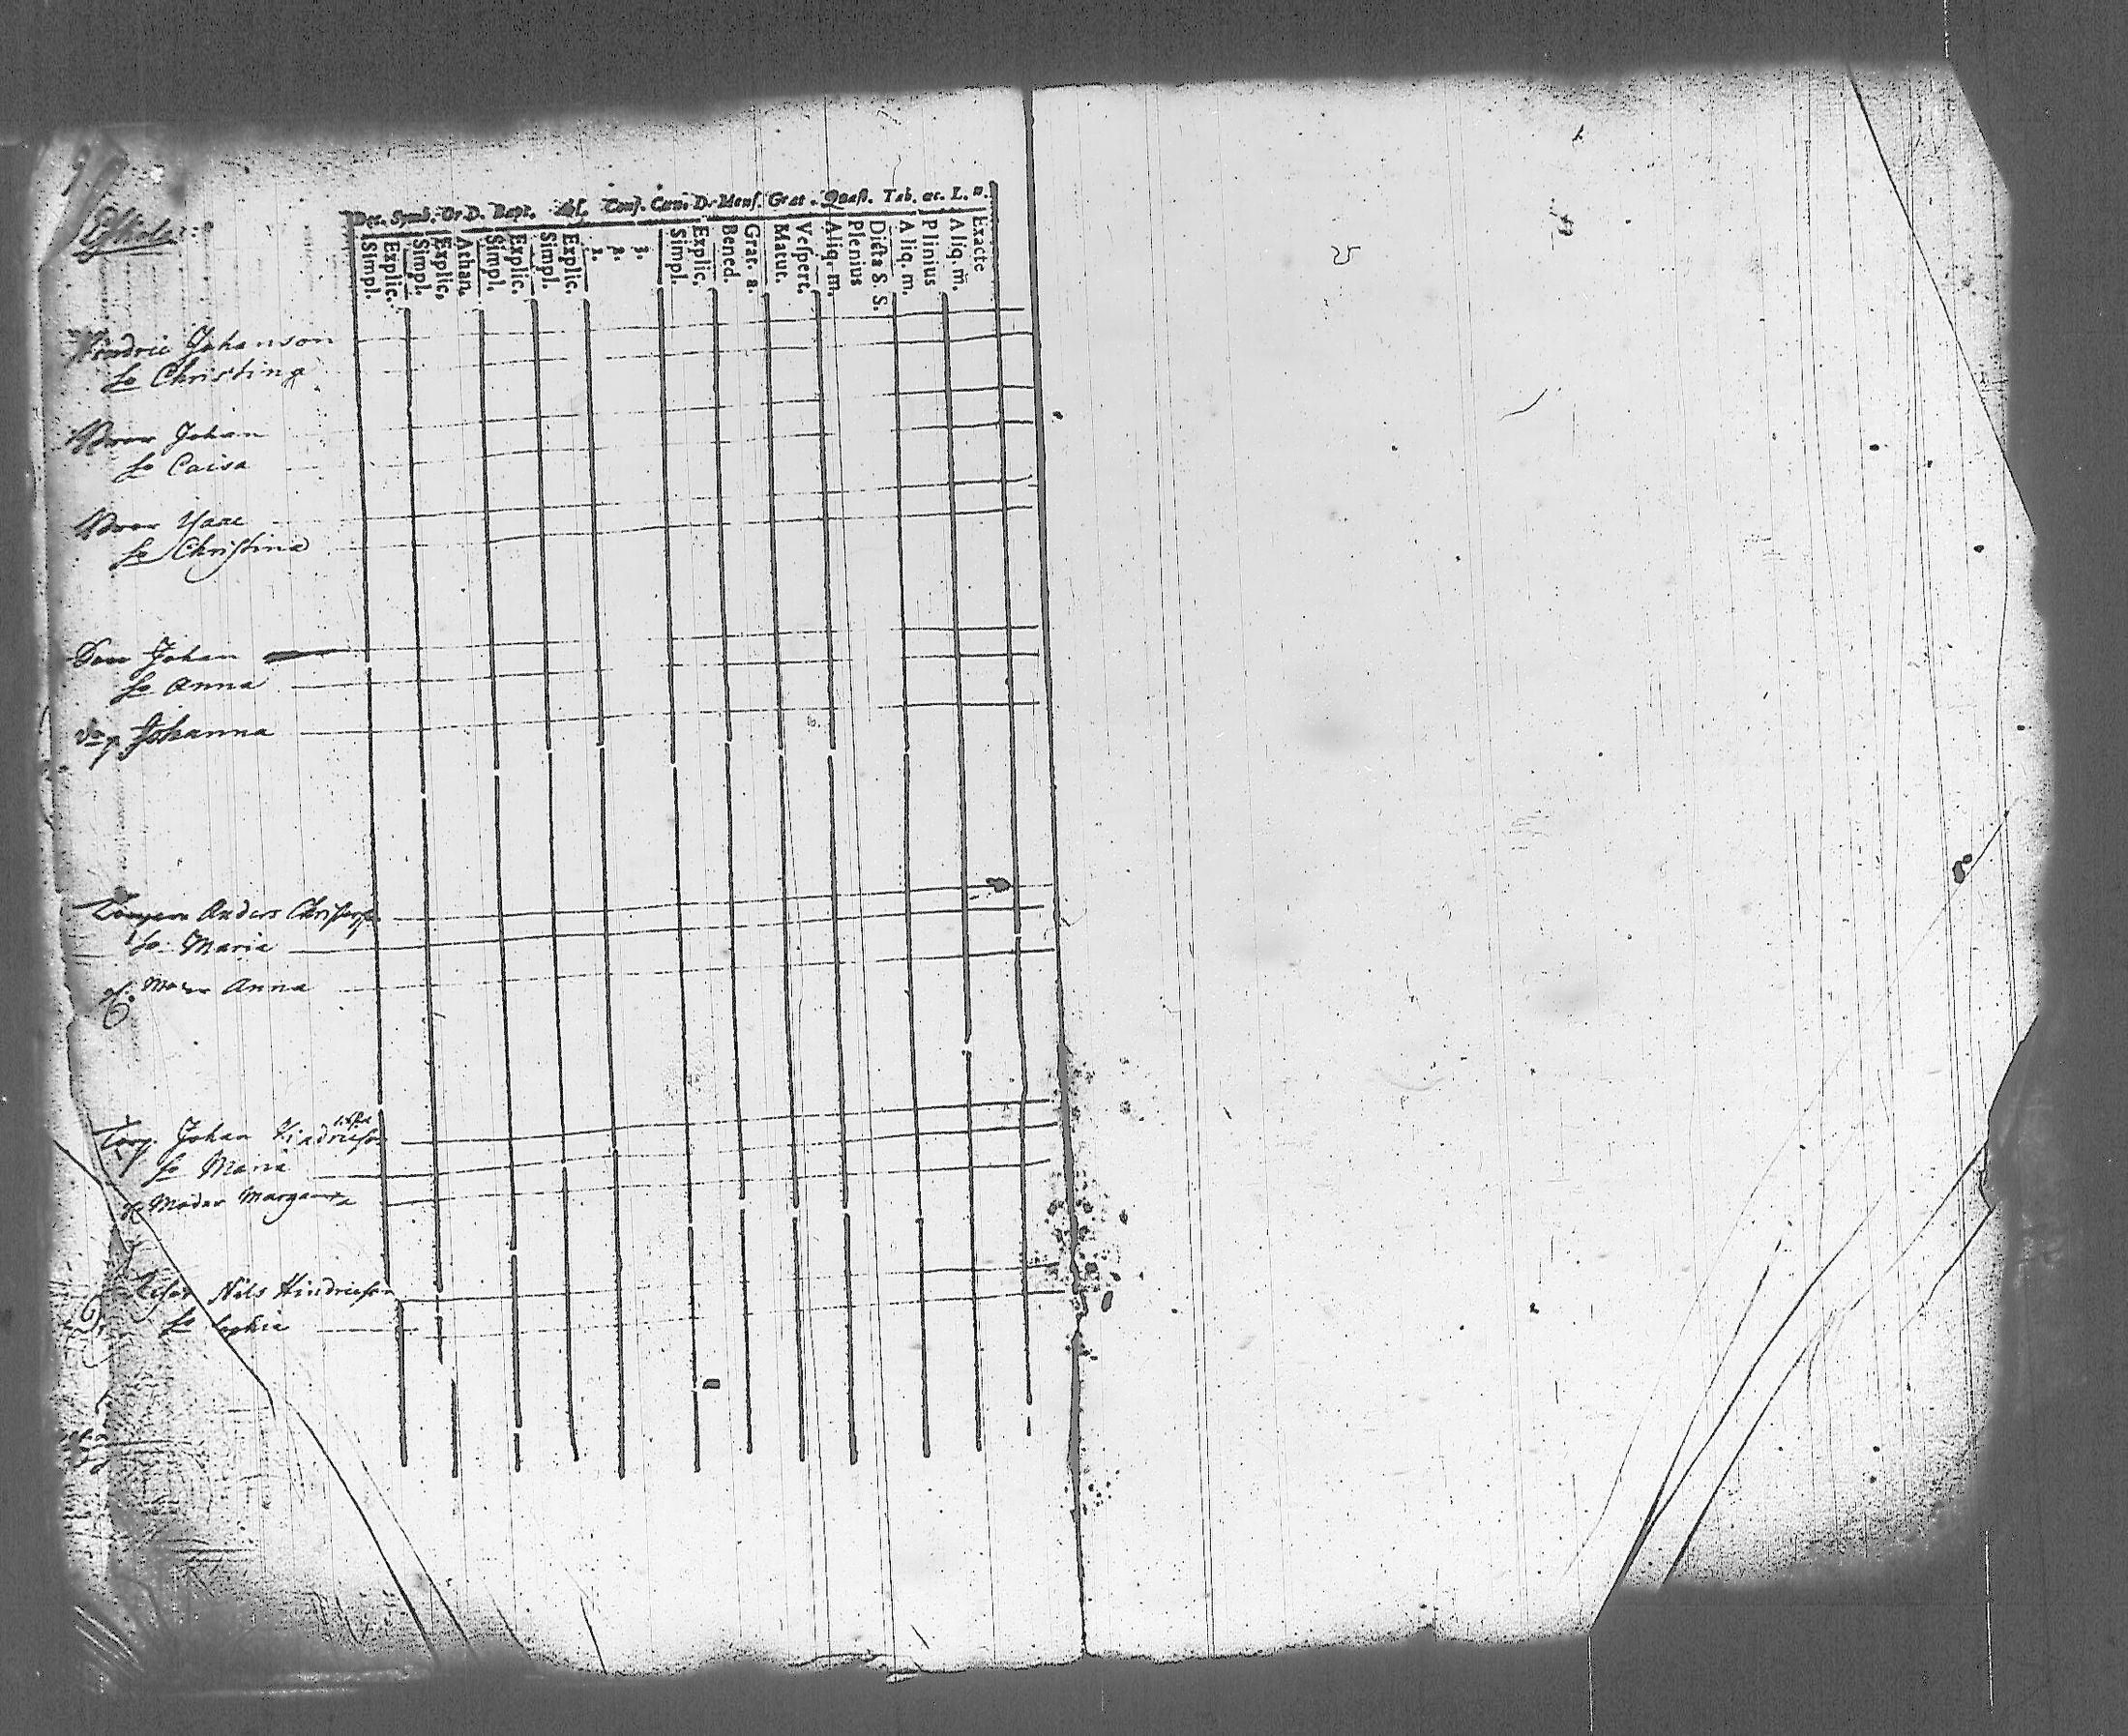 Dec. Symb. Or. D. Bapt. Abs. Conf. Cœn. D. Mens. Grat. Quæst. Tab. œc. L. n.
Simpl.
Explic.
Simpl.
Explic.
Athan.
Simpl.
Explic.
Simpl.
Explic.
1.
2.
3.
Simpl.
Explic.
Bened.
Grat. a.
Matut.
Vespert.
Aliq. m.
Plenius
Dicta S. S.
Aliq. m.
Plinius
Aliq. m.
Exacte
25
Hindric Johanson
ho Christina
Broer Johan
ho Caisa
Broer Isaac
ho Christina
Son Johan
ho Anna
Johanna
Anders
ho Maria
Moder Anna
Torp. Johan Hindricson
ho Maria
Moder Margareta
Nils Hindricson
ho Sophia